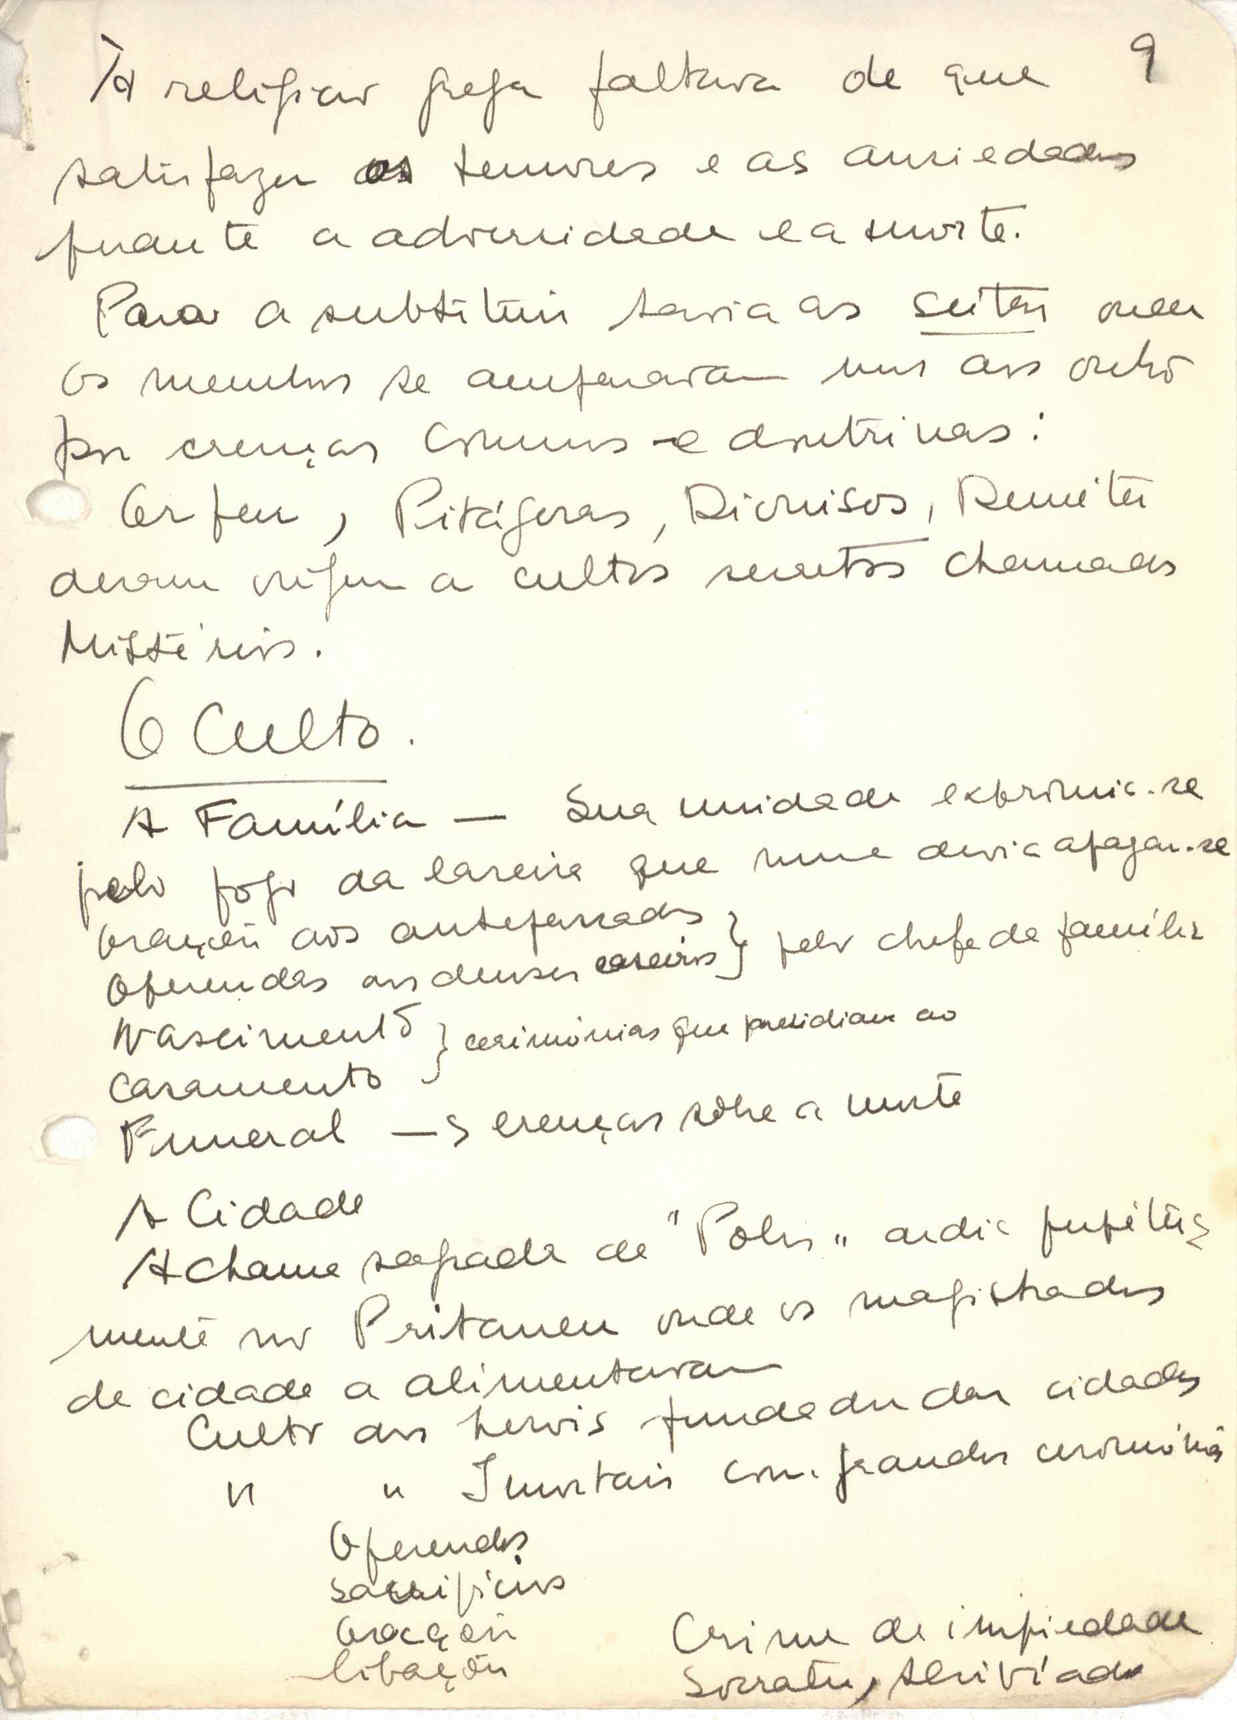 9
À religião grega faltava de que
satisfazer os temores e as ansiedades
perante a adversidade e a morte.
Para a substituir havia as seitas onde
os membros se amparavam uns aos outros
por crenças comuns e doutrinas:
Orfeu, Pitágoras, Dionisos, Deméter
deram origem a cultos secretos chamados
Mistérios.
O Culto.
A Família — Sua unidade exprimia-se
pelo fogo da lareira que nunca devia apagar-se
Orações aos antepassados
Oferendas aos deuses caseiros } pelo chefe da família
Nascimento
Casamento } cerimónias que presidiam ao
Funeral —> crenças sobre a morte
A Cidade
A chama sagrada da "Polis" ardia perpétua
mente no Pritaneu onde os magistrados
da cidade a alimentavam
Culto aos herois fundador das cidades
" " Imortais com grandes cerimónias
Oferendas
sacrifícios
Orações
libações
Crime de impiedade
Socrates, Alcivíades